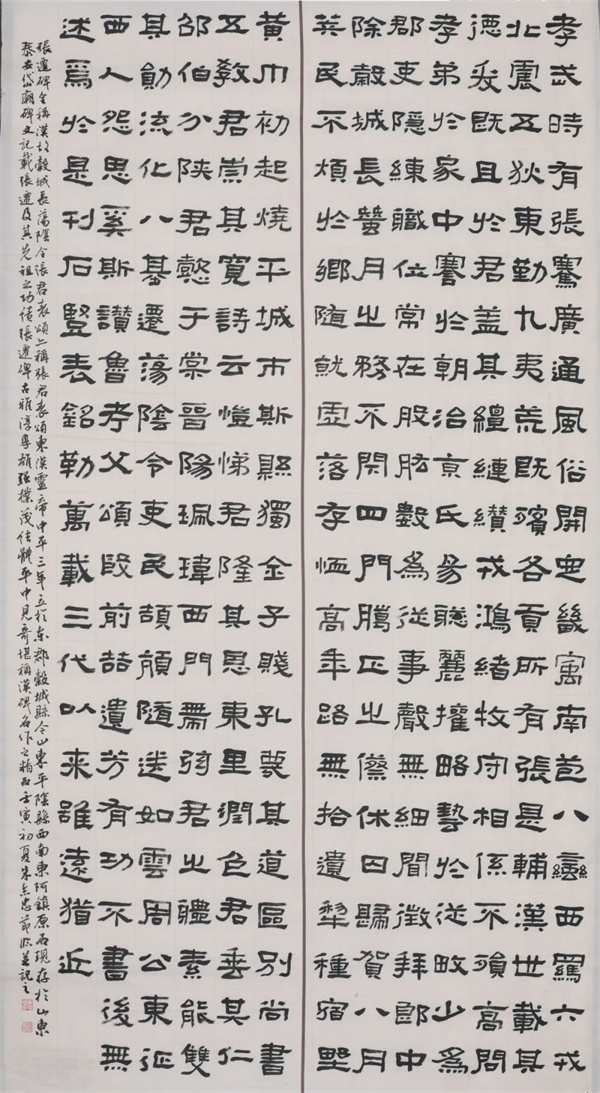 孝武時有張騫廣通風俗開定畿寓南苞八蠻西羈六戎
北震五狄東勤九夷荒既殯各貢所有張是輔漢世載其
德爰既且於君蓋其繵縺纘戎鴻緒牧守相係不殞高問
孝弟於家中謇於朝治京氏易聰麗權略藝於從畋少為
郡吏隱練職位常在股肱數為從事聲無細聞徵拜郎中
除穀城長蠶月之務不閉四門騰正之僚休囚歸賀八月
筭民不煩於鄉隨就虛落存恤高年路無拾遺犁種宿野
黃巾初起燒平城市斯縣獨全子賤孔蔑其道區別尚書
五教君崇其寬詩云愷悌君隆其恩東里潤色君垂其仁
邵伯分陝君懿于棠晉陽珮瑋西門帶弦君之體素能雙
其勛流化八基遷蕩陰令吏民頡頏隨送如雲周公東征
西人怨思奚斯讚魯考父頌殷前喆遺芳有功不書後無
述焉於是刊石豎表銘勒萬載三代以來雖遠猶近
張遷碑全稱漢故穀城長蕩陰令張君表頌亦稱張君表頌東漢靈帝中平三年立於東郡穀城縣今山東平陰縣西南東阿鎮原石現存於山東
泰安岱廟碑文記載張遷及其先祖之功績張遷碑古雅淳厚雄強樸茂結體平中見奇堪稱漢碑名作之精品壬寅初夏朱志忠節臨並記之